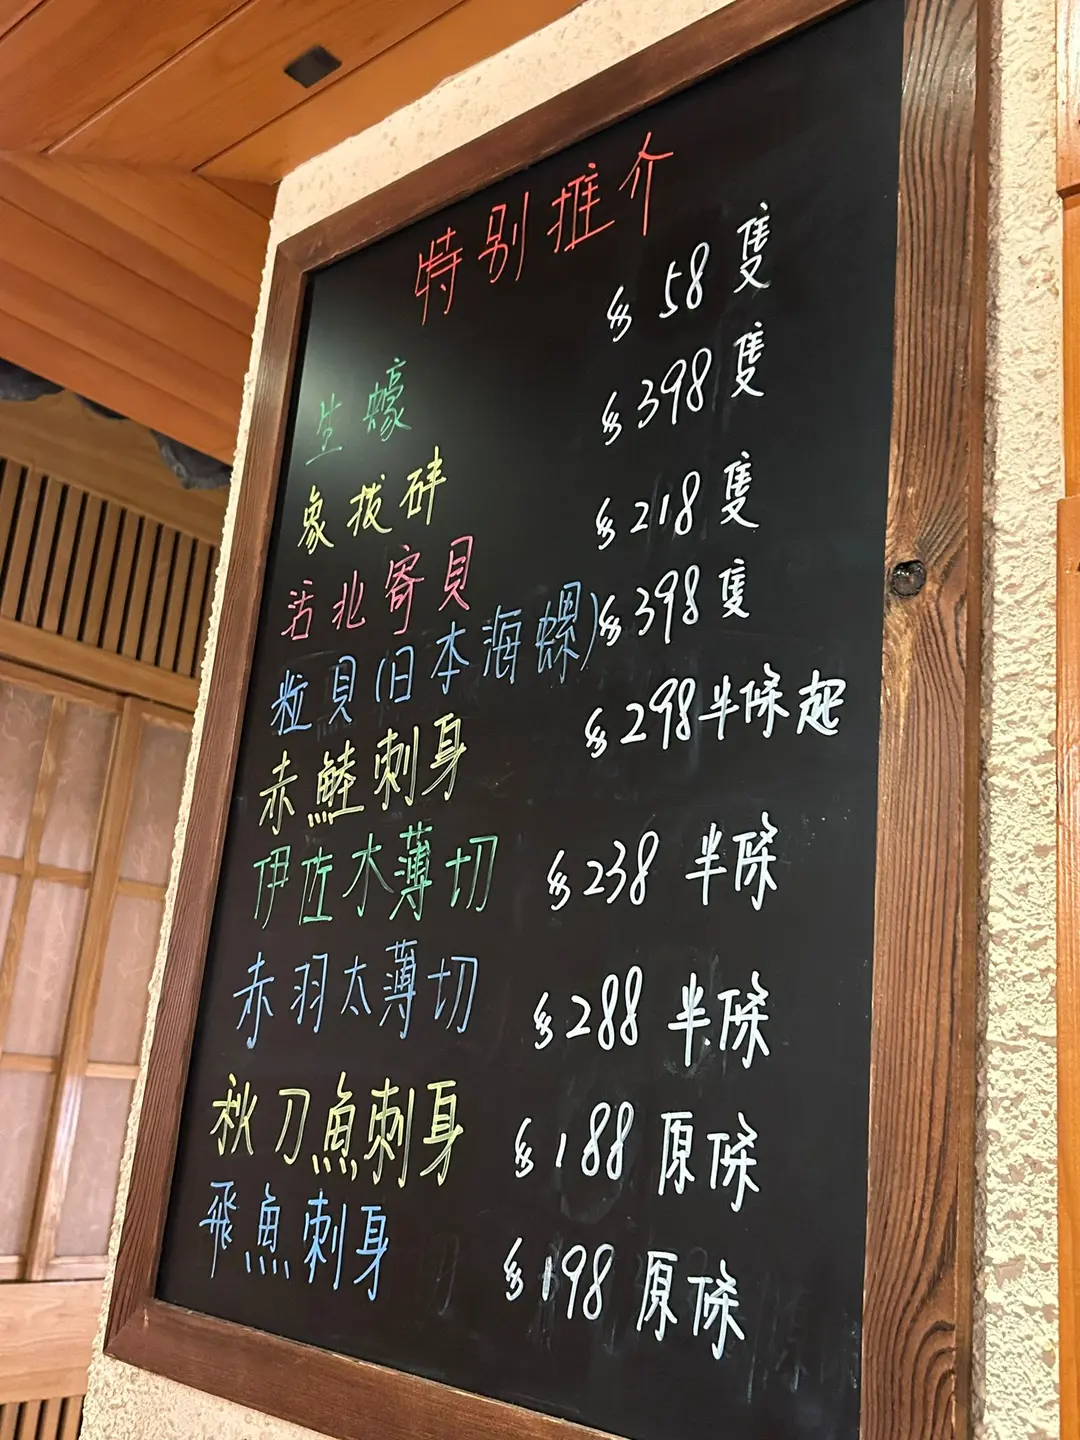 特别推介
生蠔 $58隻
象拔蚌 $398隻
活北寄貝 $218隻
粒貝(日本海螺) $398隻
赤鯥刺身 $298半條起
伊佐木薄切 $238半條
赤羽太薄切 $288半條
秋刀魚刺身 $188原條
飛魚刺身 $198原條